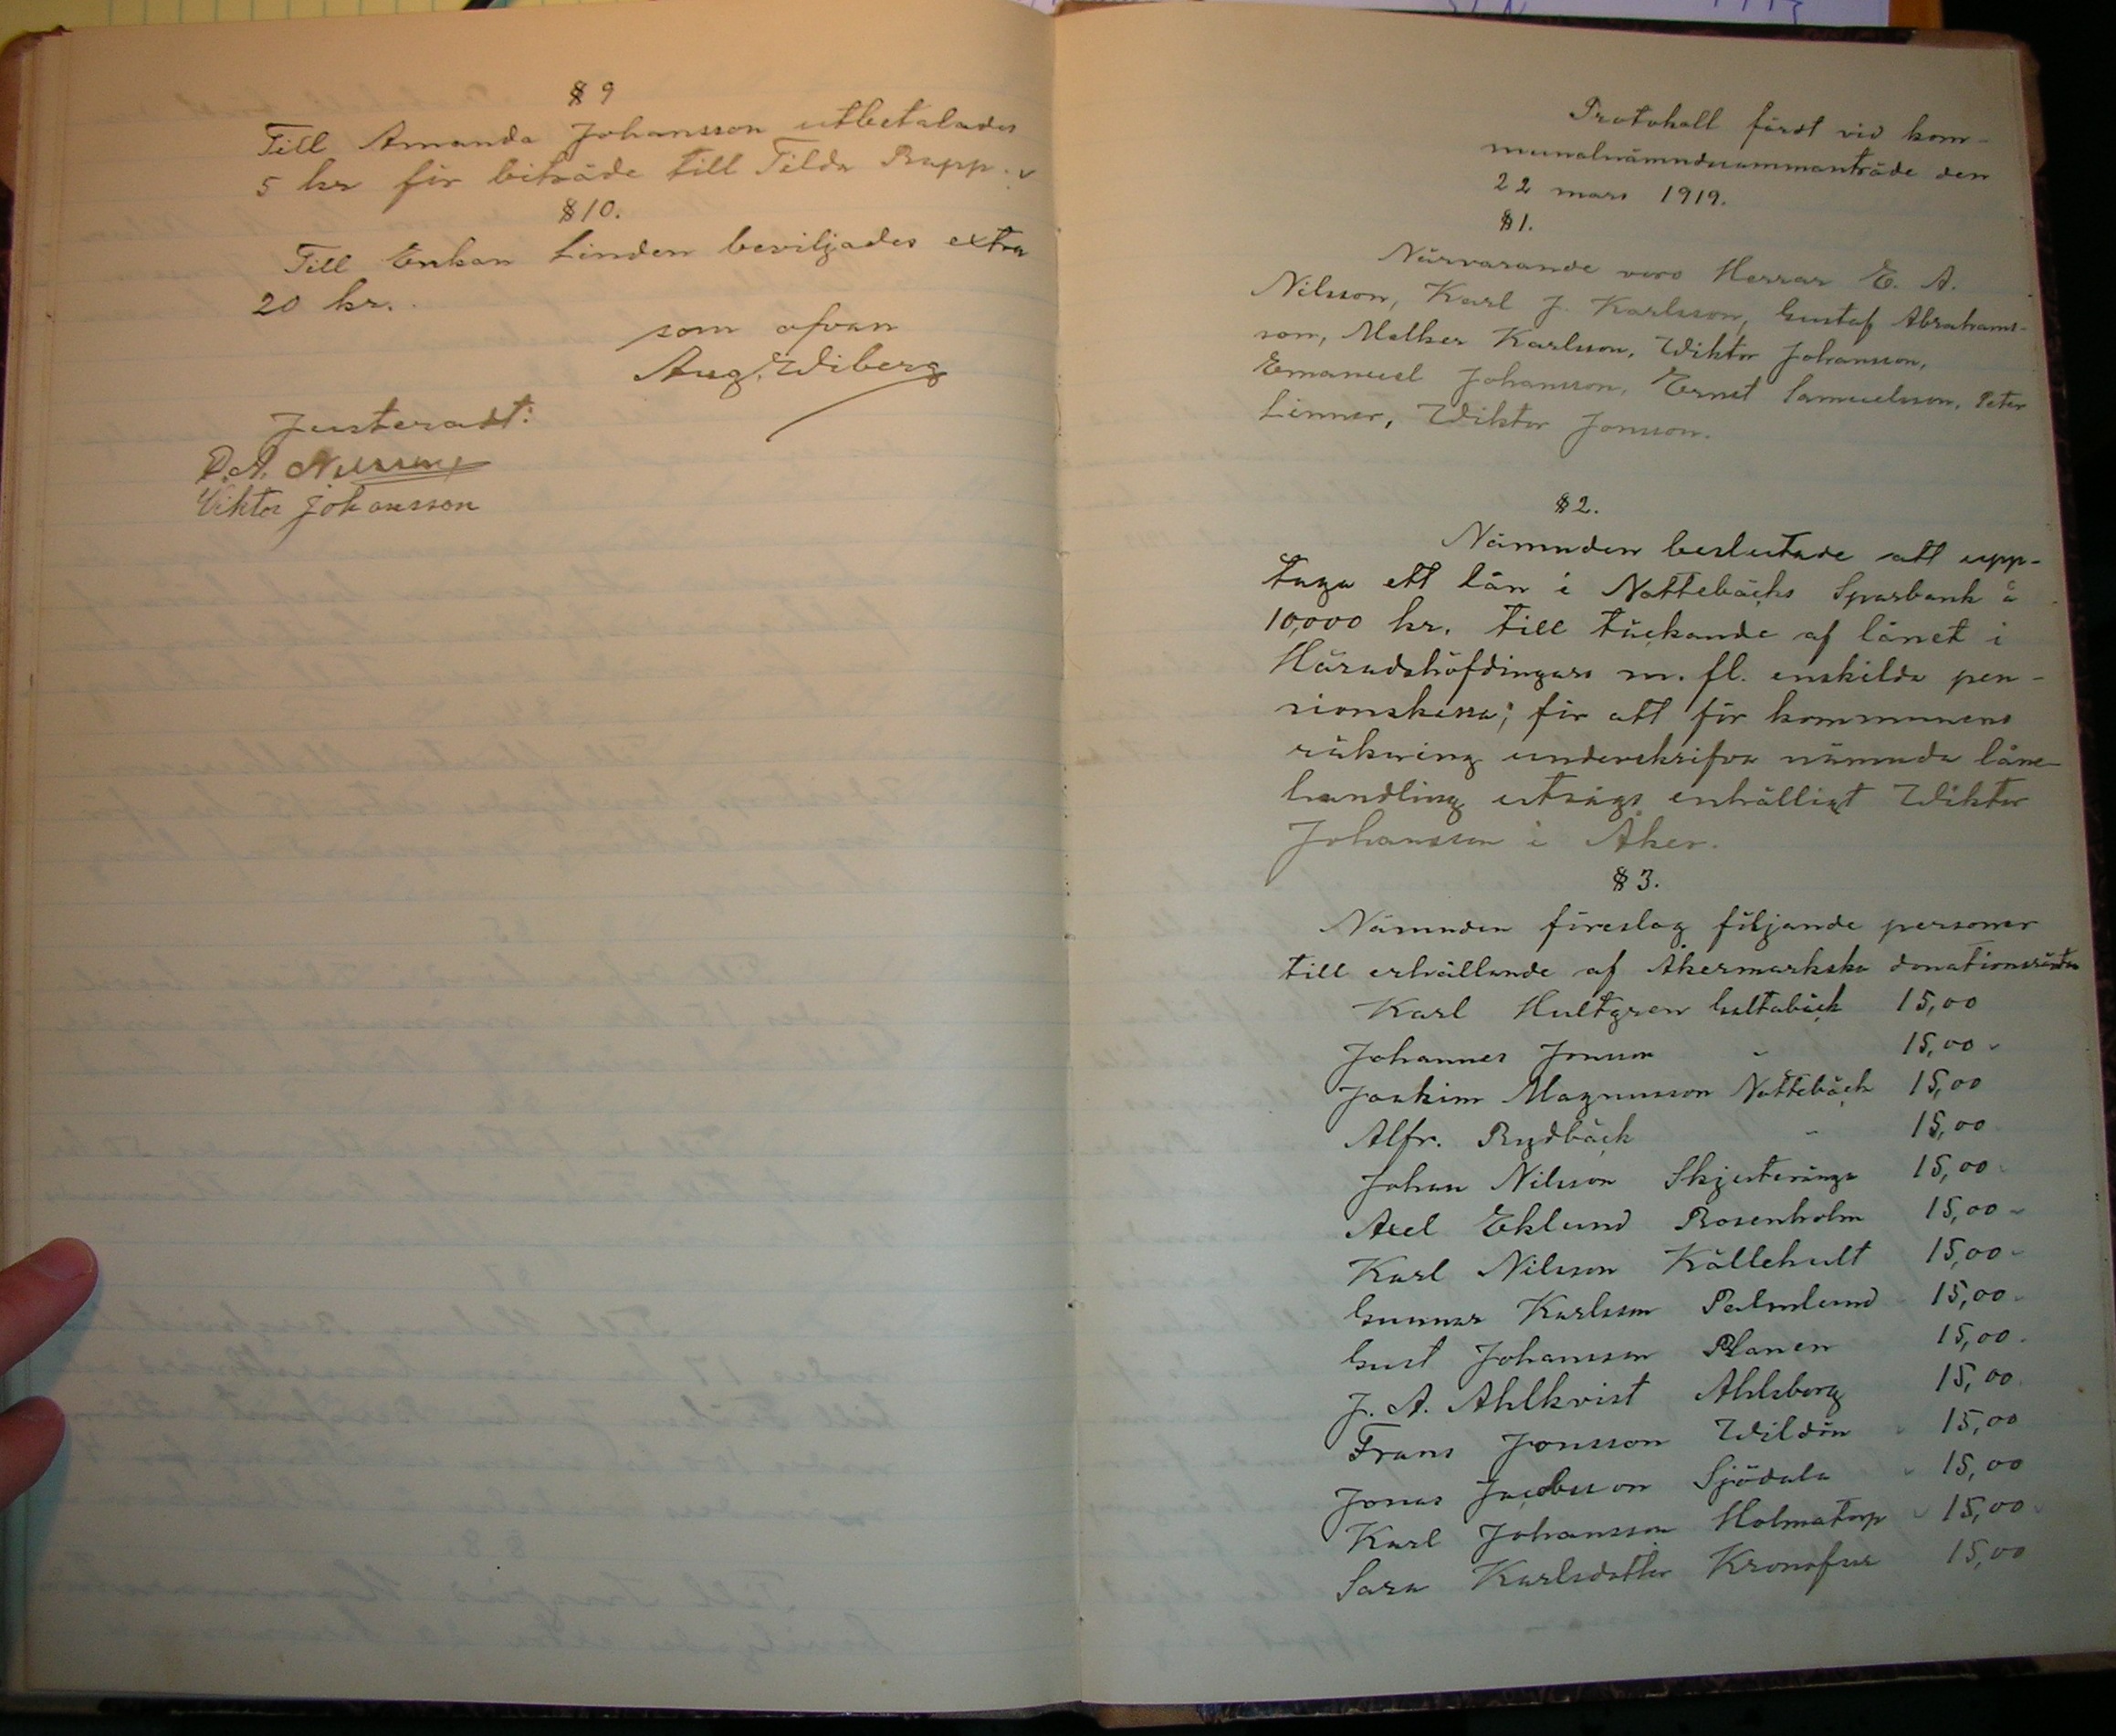 § 9
Till Amanda Johansson utbetalades
5 kr för biträde till Tilda Rapp.
§ 10.
Till Enkan Linden beviljades extra
20 kr.
som ofvan
Aug. Wiberg
Justeradt:
Viktor Johansson
Protokoll fördt vid kom-
munalnämndsammanträde den
22 mars 1919.
§ 1.
Närvarande voro Herrar E. A.
Nilsson, Karl J. Karlsson, Gustaf Abrahams-
son, Melker Karlsson, Wiktor Johansson,
Emanuel Johansson, Ernst Samuelsson, Peter
Linner, Wiktor Jonsson.
§ 2.
Nämnden beslutade att upp-
taga ett lån i Nottebäcks Sparbank å
10,000 kr. till täckande af lånet i
Häradshöfdingars m. fl. enskilda pen-
sionskassa; för att för kommunens
räkning underskrifva nämnda låne-
handling utsågs enhälligt Wiktor
Johansson i Åker.
§ 3.
Nämnden föreslog följande personer
till erhållande af Åkermarkska donationsräntan
Karl Hultgren Galtabäck 15,00
Johannes Jonsson " 15,00
Joakim Magnusson Nottebäck 15,00
Alfr. Rydbäck " 15,00
Johan Nilsson Skjuteränga 15,00
Axel Eklund Rosenholm 15,00
Karl Nilsson Källehult 15,00
Gunnar Karlsson Palmlund 15,00
Gust Johansson Planen 15,00
J. A. Ahlkvist Ahlsberg 15,00
Frans Jonsson Wildön 15,00
Jonas Jacobsson Sjödala 15,00
Karl Johansson Holmatorp 15,00
Sara Karlsdotter Kronofur 15,00